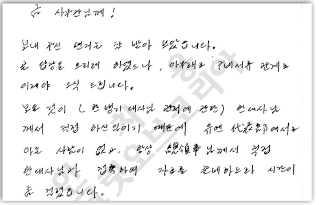 금 사무관님께!
보내 주신 편지는 잘 받아 보았습니다.
곧 답장을 드리려 하였으나, 아무래도 관계로
이제야 소식 드립니다.
모든 것이 (한병기 대사님 관저에 관한) 한대사님
께서 직접 하신 일이기 때문에 유엔 代表部에서도
아는 사람이 없고, 항상 總領事님께서 직접
한대사님과 접촉하여 자료를 보내느라 시간이
좀 걸렸습니다.